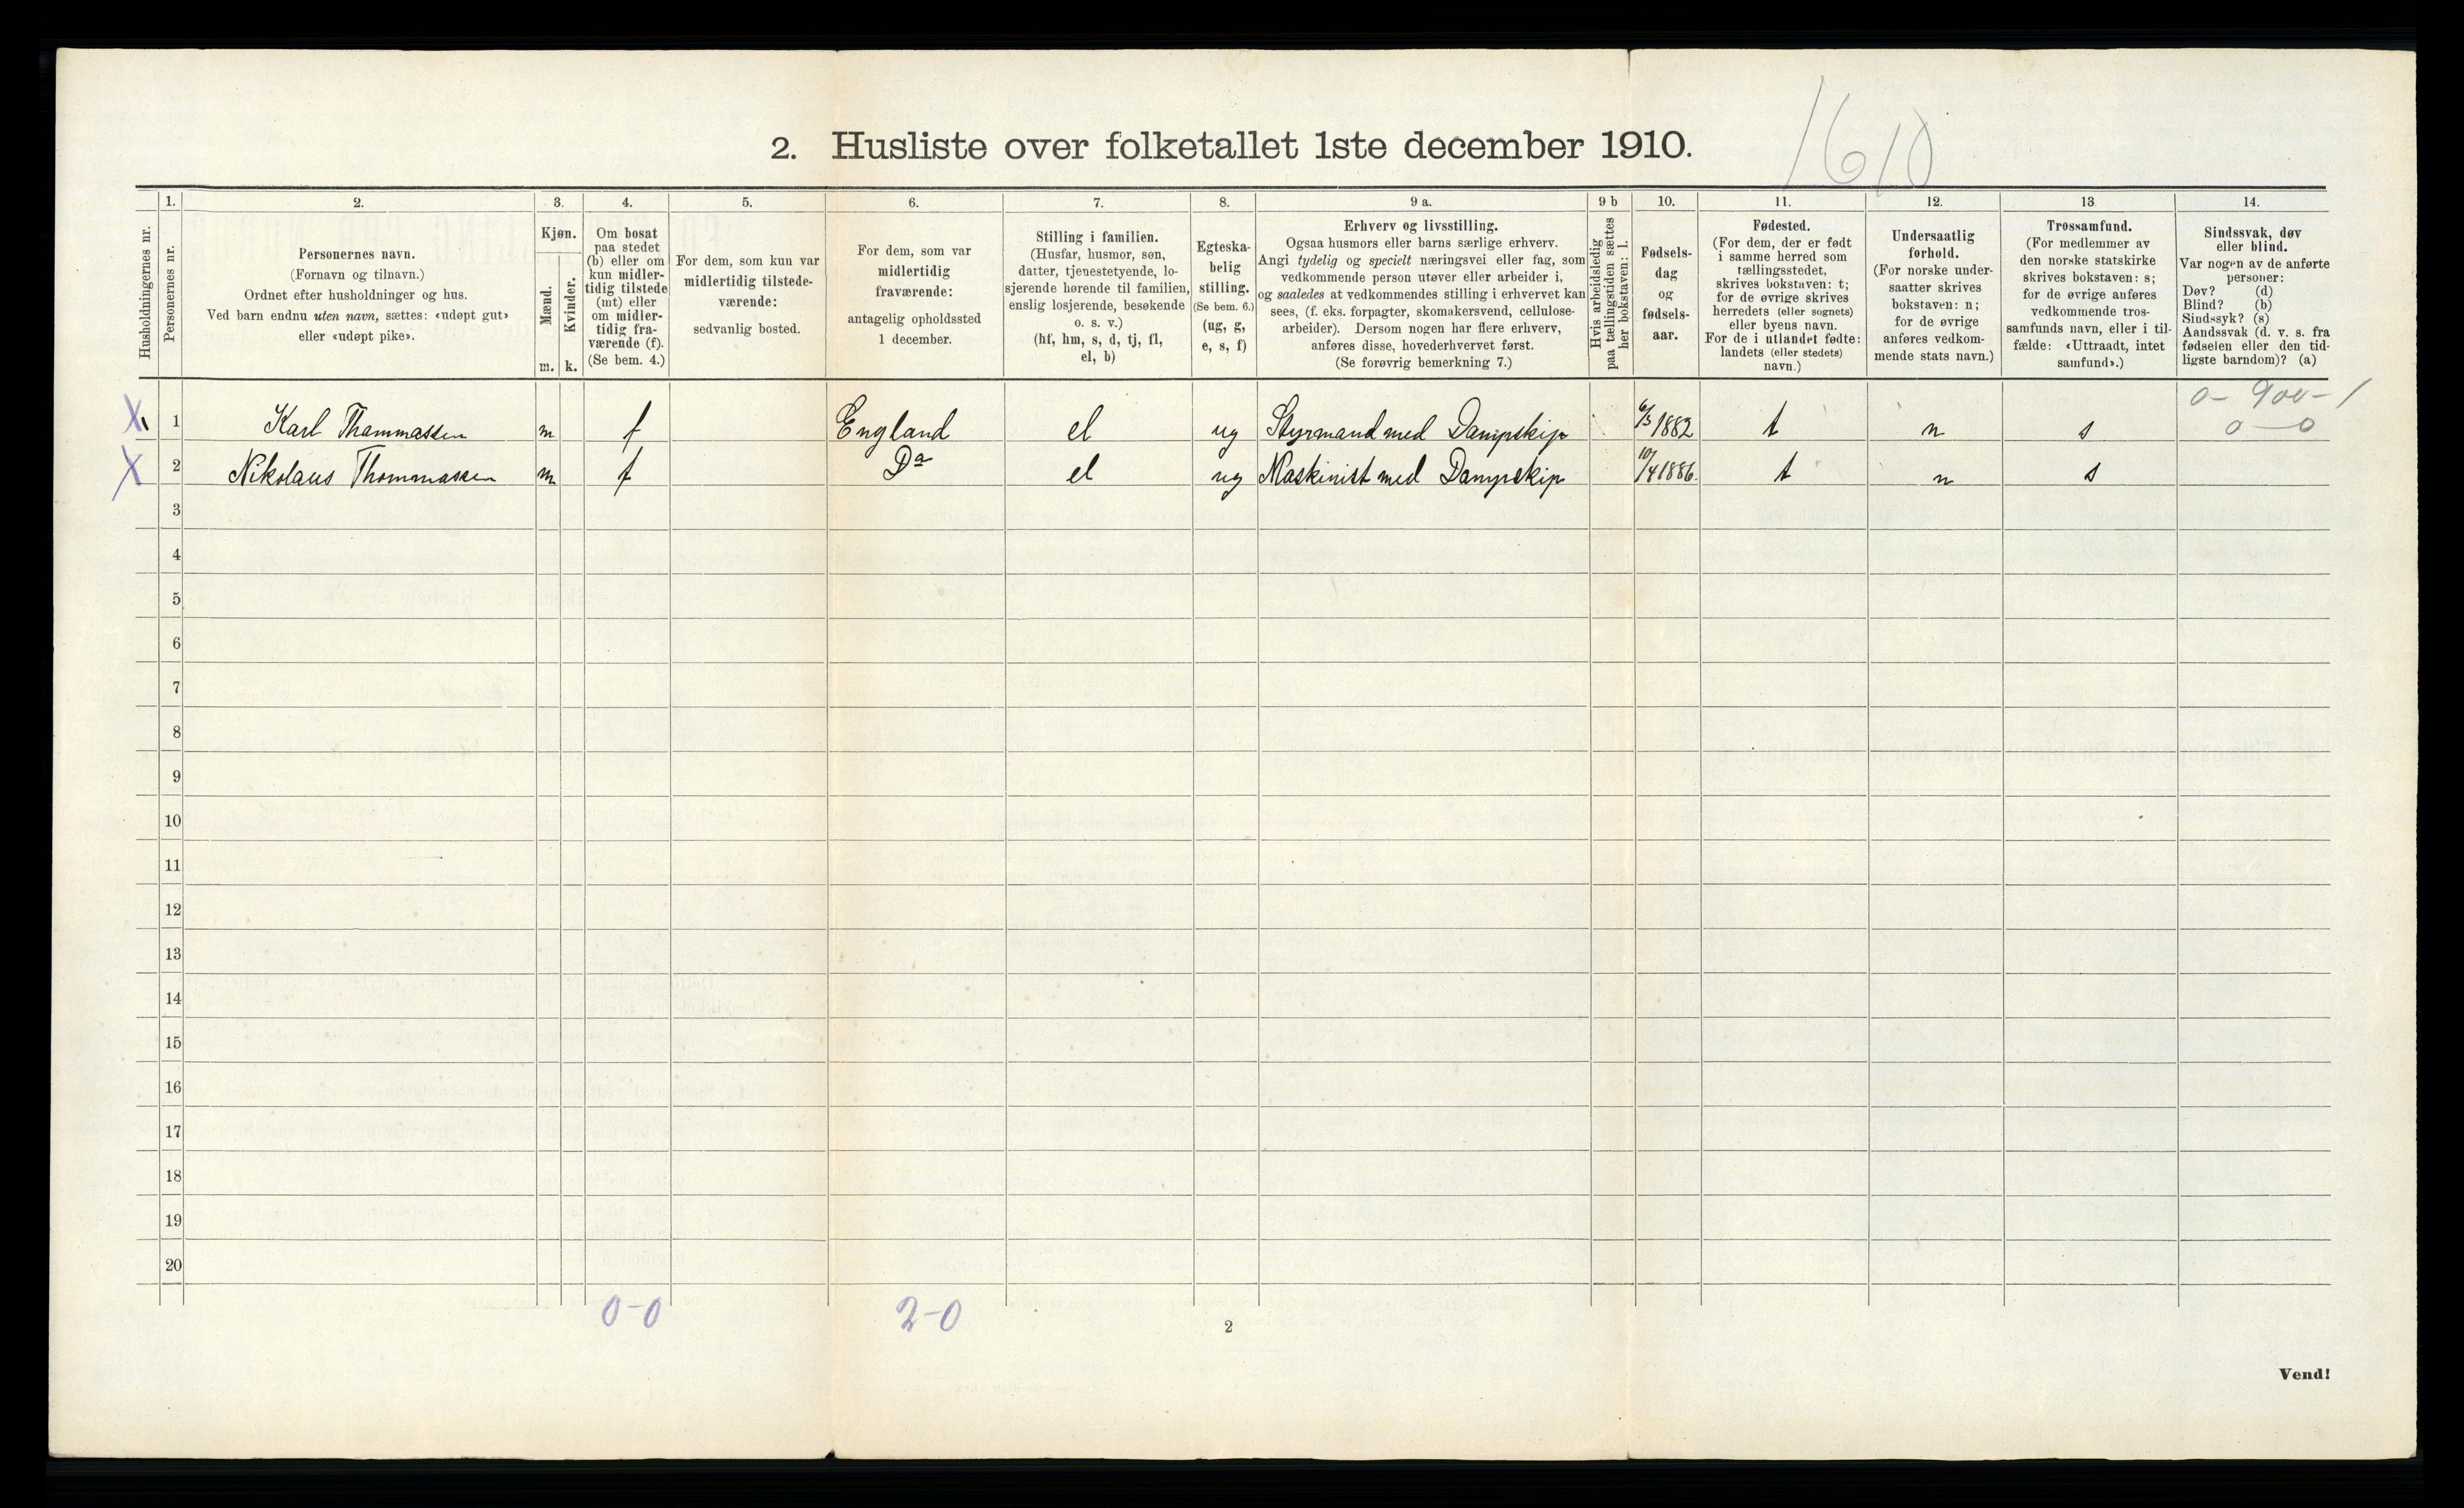 1610
2. Husliste over folketallet 1ste december 1910.
Husholdningernes nr.
1.
Personernes nr.
2.
Personernes navn.
(Fornavn og tilnavn.)
Ordnet efter husholdninger og hus.
Ved barn endnu uten navn, sættes: «udøpt gut»
eller «udøpt pike».
3.
Kjøn.
Mænd.
Kvinder.
m. k.
4.
Om bosat
paa stedet
(b) eller om
kun midler-
tidig tilstede
(mt) eller
om midler-
tidig fra-
værende (f).
(Se bem. 4.)
5.
For dem, som kun var
midlertidig tilstede-
værende:
sedvanlig bosted.
6.
For dem, som var
midlertidig
fraværende:
antagelig opholdssted
1 december.
7.
Stilling i familien.
(Husfar, husmor, søn,
datter, tjenestetyende, lo-
sjerende hørende til familien,
enslig losjerende, besøkende
o. s. v.)
(hf, hm, s, d, tj, fl,
el, b)
8.
Egteska-
belig
stilling.
(Se bem. 6.)
(ug, g,
e, s, f)
9 a.
Erhverv og livsstilling.
Ogsaa husmors eller barns særlige erhverv.
Angi tydelig og specielt næringsvei eller fag, som
vedkommende person utøver eller arbeider i,
og saaledes at vedkommendes stilling i erhvervet kan
sees, (f. eks. forpagter, skomakersvend, cellulose-
arbeider). Dersom nogen har flere erhverv,
anføres disse, hovederhvervet først.
(Se forøvrig bemerkning 7.)
9 b
Hvis arbeidsledig
paa tællingstiden sættes
her bokstaven: l.
10.
Fødsels-
dag
og
fødsels-
aar.
11.
Fødested.
(For dem, der er født
i samme herred som
tællingsstedet,
skrives bokstaven: t;
for de øvrige skrives
herredets (eller sognets)
eller byens navn.
For de i utlandet fødte:
landets (eller stedets)
navn.)
12.
Undersaatlig
forhold.
(For norske under-
saatter skrives
bokstaven: n;
for de øvrige
anføres vedkom-
mende stats navn.)
13
Trossamfund.
(For medlemmer av
den norske statskirke
skrives bokstaven: s;
for de øvrige anføres
vedkommende tros-
samfunds navn, eller i til-
fælde: «Uttraadt, intet
samfund».)
14.
Sindssvak, døv
eller blind.
Var nogen av de anførte
personer:
Døv? (d)
Blind? (b)
Sindssyk? (s)
Aandssvak (d. v. s. fra
fødselen eller den tid-
ligste barndom)? (a)
0 - 900 - 1
0 — 0
X 1 1 Karl Thommassen m f England el ug Styrmand med Dampskip 6/3 1882 t n s
X 2 Nikolaus Thommassen m f Do el ug Maskinist med Dampskip 10/4 1886. t n s
3
4
5
6
7
8
9
10
11
12
13
14
15
16
17
18
19
20
0-0 2-0
2
Vend!